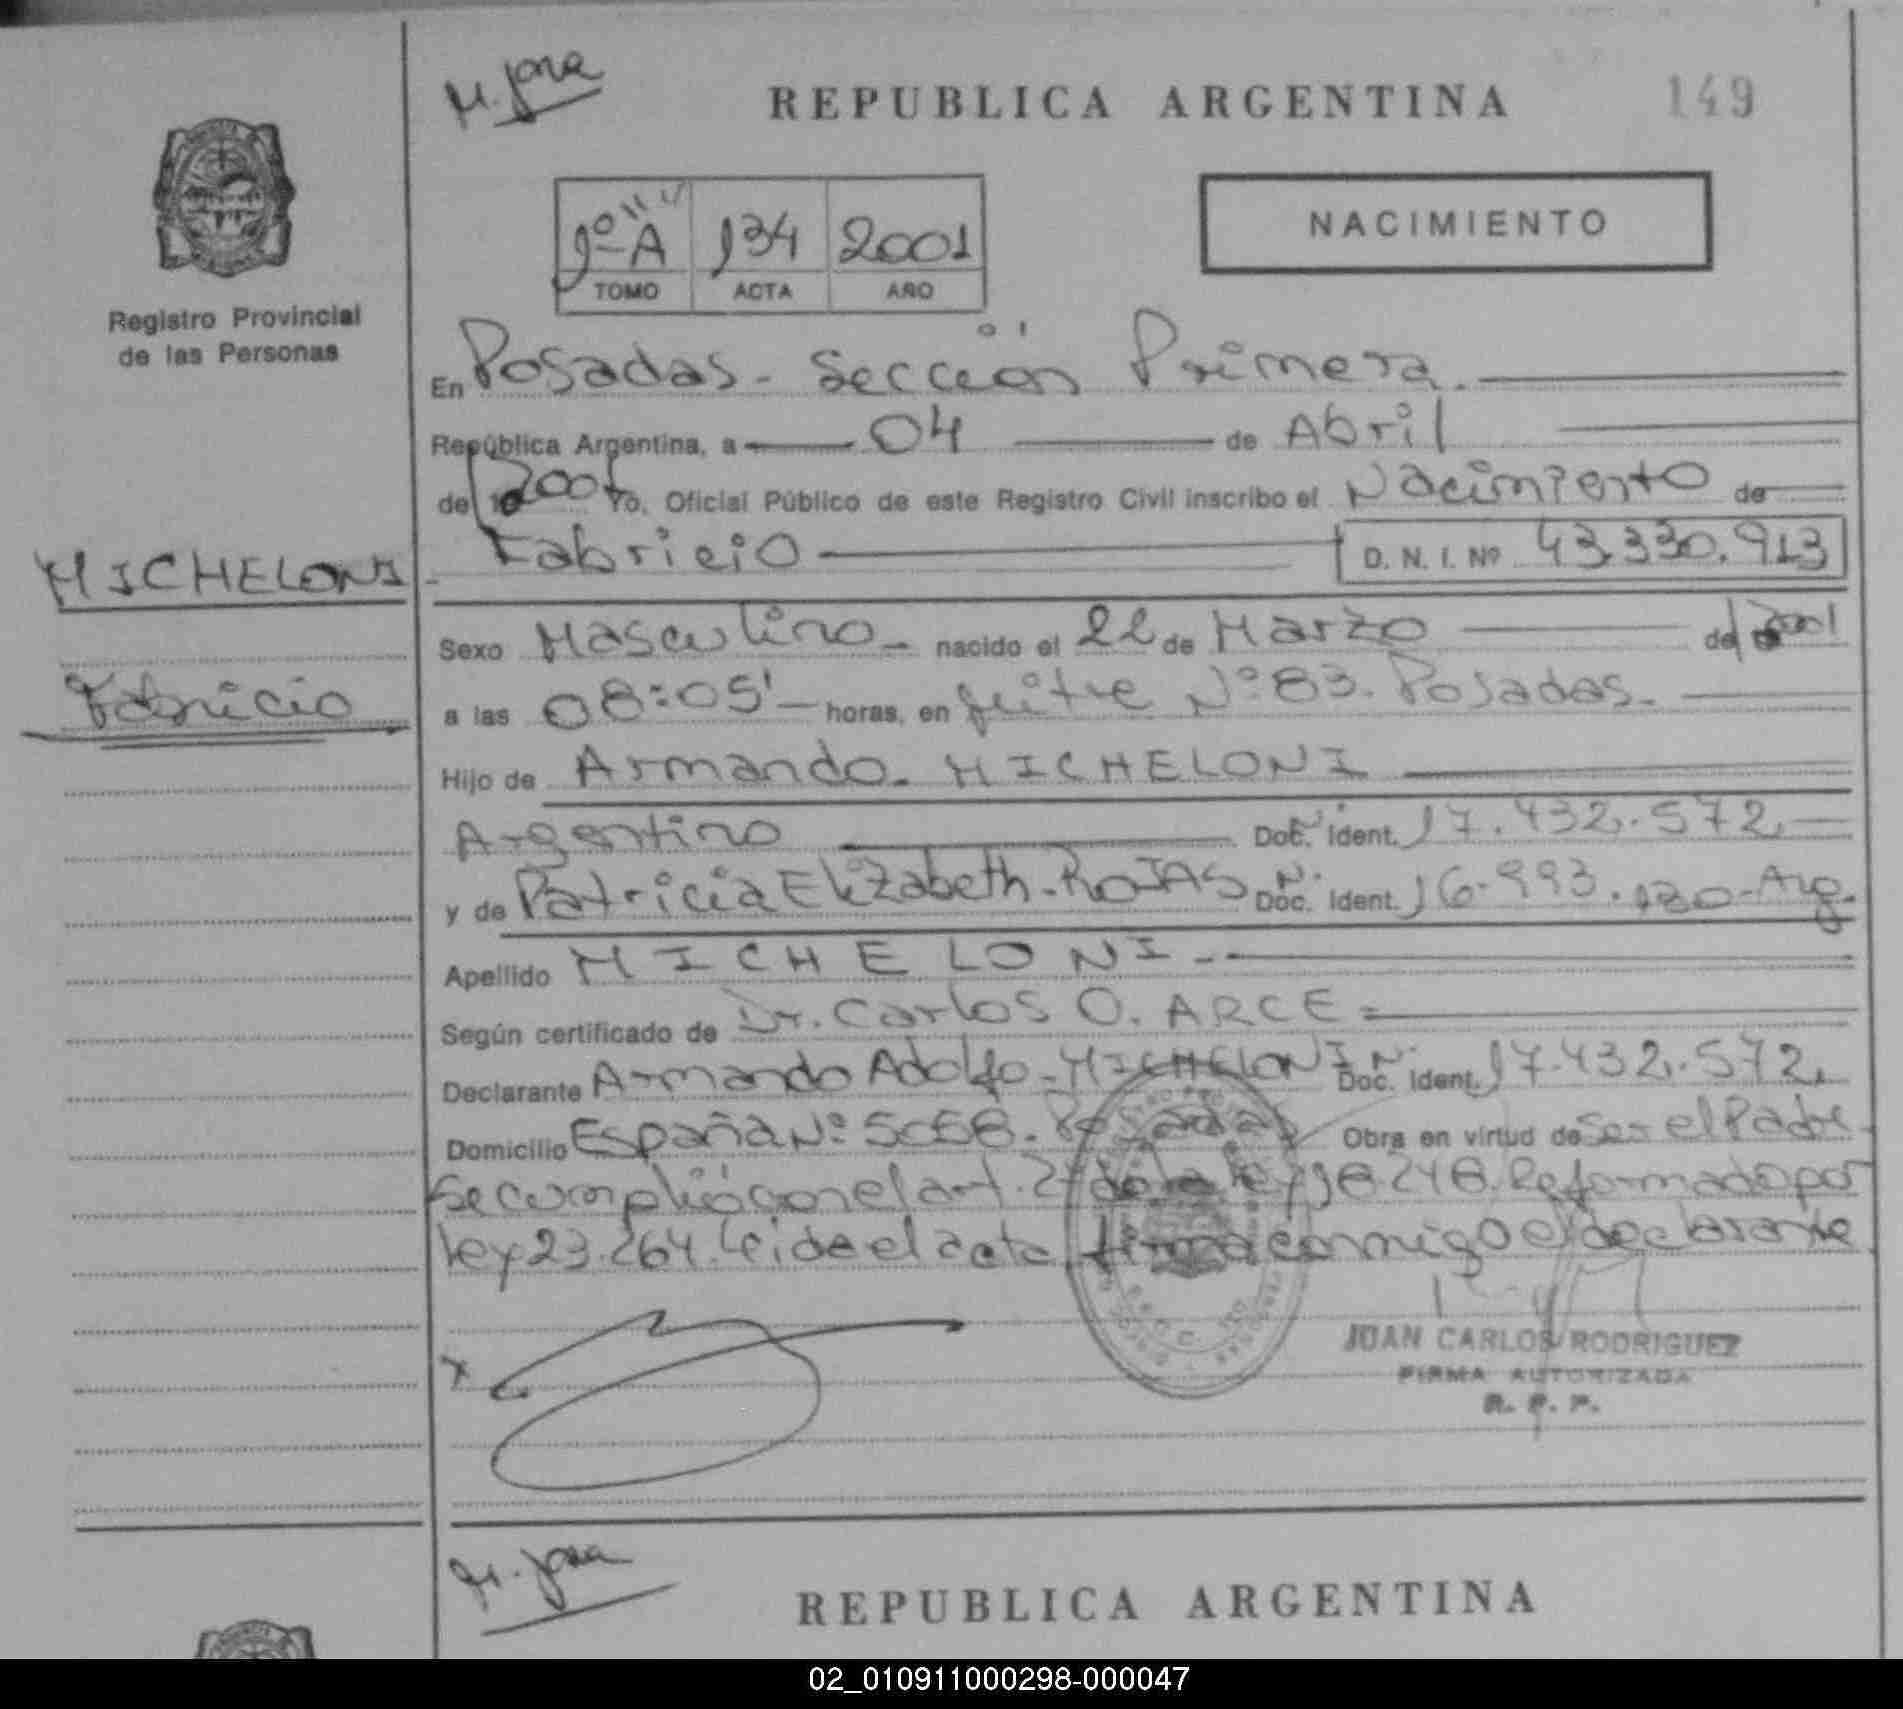 M. Jara
REPUBLICA ARGENTINA
149
1º A 134 2001
TOMO ACTA AÑO
NACIMIENTO
Registro Provincial
de las Personas
En Posadas - Sección Primera.
República Argentina, a 04 de Abril
de 2001 Yo, Oficial Público de este Registro Civil inscribo el Nacimiento de
MICHELONI
Fabricio
Fabricio D. N. I. Nº 43.330.913
Sexo Masculino nacido el 22 de Marzo de 2001
a las 08:05' horas, en Nº 83. Posadas.
Hijo de Armando. MICHELONI
Argentino Doc. Ident. 17.432.572
y de Patricia Elizabeth. ROJAS Doc. Ident. 16.993.130 - Arg.
Apellido MICHELONI
Según certificado de Dr. Carlos O. ARCE
Declarante Armando Adolfo - MICHELONI Doc. Ident. 17.432.572
Domicilio España Nº Posadas Obra en virtud de Ser el Padre
Se cumplió con el art. de la ley 18.248. Reformado por
ley 23.264. Leida el acta firma conmigo el declarante
JUAN CARLOS RODRIGUEZ
FIRMA AUTORIZADA
R. P. P.
M. Jara
REPUBLICA ARGENTINA
02_010911000298-000047